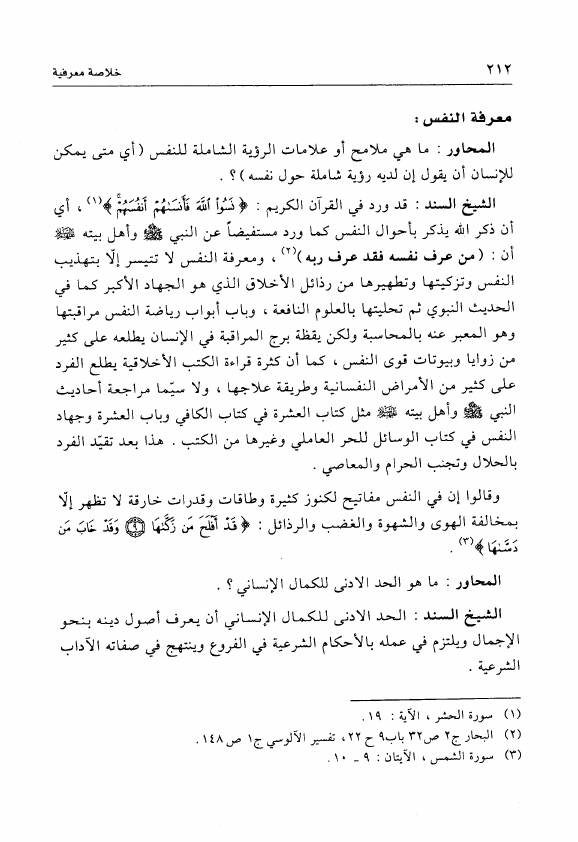 ٢١٢ خلاصة معرفية
معرفة النفس :
المحاور : ما هي ملامح أو علامات الرؤية الشاملة للنفس (أي متى يمكن
للإنسان أن يقول إن لديه رؤية شاملة حول نفسه)؟ .
الشيخ السند : قد ورد في القرآن الكريم : ﴿ نَسُوا۟ ٱللَّهَ فَأَنسَىٰهُمْ أَنفُسَهُمْ ۚ ﴾(١) ، أي
أن ذكر الله يذكر بأحوال النفس كما ورد مستفيضاً عن النبي ﷺ وأهل بيته
أن : (من عرف نفسه فقد عرف ربه)(٢) ، ومعرفة النفس لا تتيسر إلّا بتهذيب
النفس وتزكيتها وتطهيرها من رذائل الأخلاق الذي هو الجهاد الأكبر كما في
الحديث النبوي ثم تحليتها بالعلوم النافعة ، وباب أبواب رياضة النفس مراقبتها
وهو المعبر عنه بالمحاسبة ولكن يقظة برج المراقبة في الإنسان يطلعه على كثير
من زوايا وبيوتات قوى النفس ، كما أن كثرة قراءة الكتب الأخلاقية يطلع الفرد
على كثير من الأمراض النفسانية وطريقة علاجها ، ولا سيّما مراجعة أحاديث
النبي ﷺ وأهل بيته مثل كتاب العشرة في كتاب الكافي وباب العشرة وجهاد
النفس في كتاب الوسائل للحر العاملي وغيرها من الكتب . هذا بعد تقيّد الفرد
بالحلال وتجنب الحرام والمعاصي .
وقالوا إن في النفس مفاتيح لكنوز كثيرة وطاقات وقدرات خارقة لا تظهر إلّا
بمخالفة الهوى والشهوة والغضب والرذائل : ﴿ قَدْ أَفْلَحَ مَن زَكَّىٰهَا ۝٩ وَقَدْ خَابَ مَن
دَسَّىٰهَا ﴾(٣) .
المحاور : ما هو الحد الادنى للكمال الإنساني ؟ .
الشيخ السند : الحد الادنى للكمال الإنساني أن يعرف أصول دينه بنحو
الإجمال ويلتزم في عمله بالأحكام الشرعية في الفروع وينتهج في صفاته الآداب
الشرعية .
(١) سورة الحشر ، الآية : ١٩ .
(٢) البحار ج٢ ص٣٢ باب٩ ح٢٢، تفسير الآلوسي ج١ ص١٤٨ .
(٣) سورة الشمس ، الآيتان : ٩ ـ ١٠ .